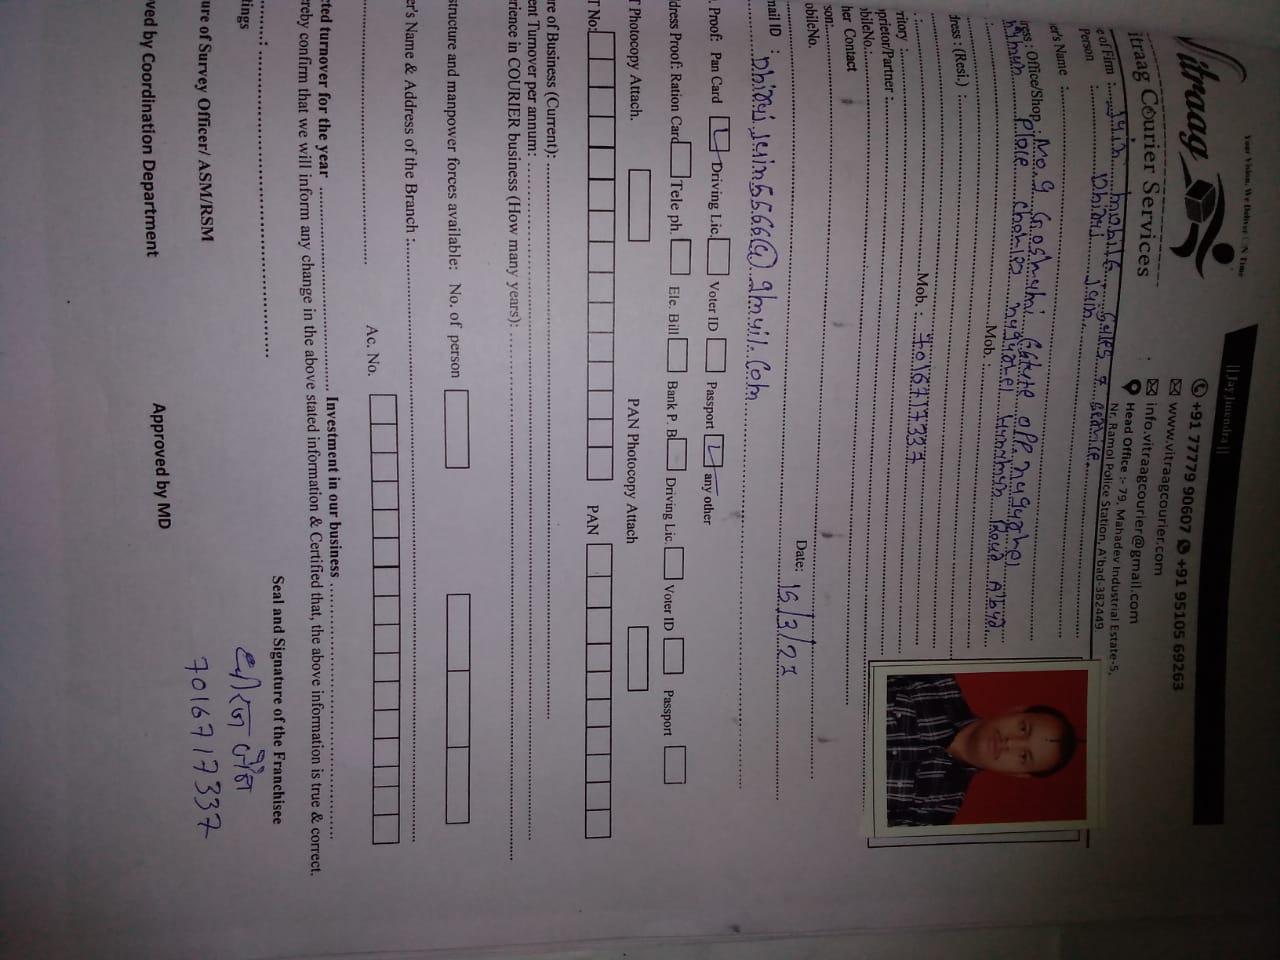 || Jay Jinendra ||
Vitraag
Your Vision, We Deliver ON Time
itraag Courier Services
+91 77779 90607 +91 95105 69263
www.vitraagcourier.com
info.vitraagcourier@gmail.com
Head Office :- 79, Mahadev Industrial Estate-5,
Nr. Ramol Police Station, A'bad-382449.
e of Firm : Jain mobile Sales & service.
Person : Dhiraj Jain
er's Name :
ress : Office/Shop : No. 9 opp.
Road A'bad
Mob. :
dress : (Resi.) :
Mob. : 7016717337
rritory :
prietor/Partner :
obileNo.:
her Contact
son:
obileNo.
Date: 15/3/27
mail ID : Dhirajjain5566@gmail.com
. Proof: Pan Card Driving Lic. Voter ID Passport any other
ddress Proof: Ration Card Tele ph. Ele. Bill Bank P. B Driving Lic. Voter ID Passport
T Photocopy Attach. PAN Photocopy Attach
T No: PAN
ure of Business (Current):
ent Turnover per annum:
rience in COURIER business (How many years):
structure and manpower forces available: No. of person
er's Name & Address of the Branch :
Ac. No.
cted turnover for the year Investment in our business
reby confirm that we will inform any change in the above stated information & Certified that, the above information is true & correct.
Seal and Signature of the Franchisee
धीरज जैन
7016717337
dings :
ure of Survey Officer/ ASM/RSM
ved by Coordination Department Approved by MD